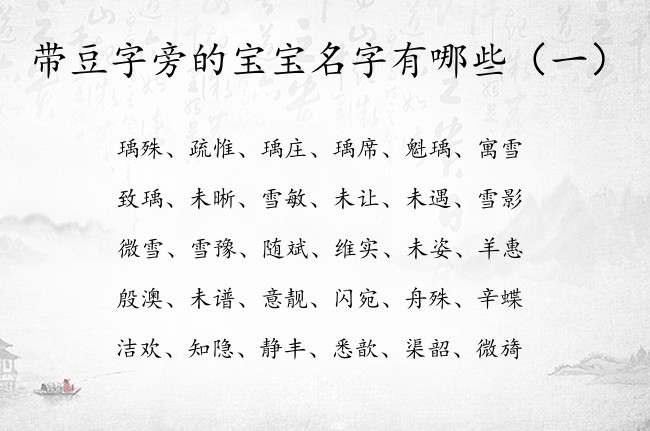 带豆字旁的宝宝名字有哪些（一）
瑀殊、疏惟、瑀庄、瑀席、魁瑀、寓雪
致瑀、未晰、雪敏、未让、未遇、雪影
微雪、雪豫、随斌、维实、未姿、羊惠
殷澳、未谱、意靓、闪宛、舟殊、辛蝶
洁欢、知隐、静丰、悉歆、渠韶、微旖